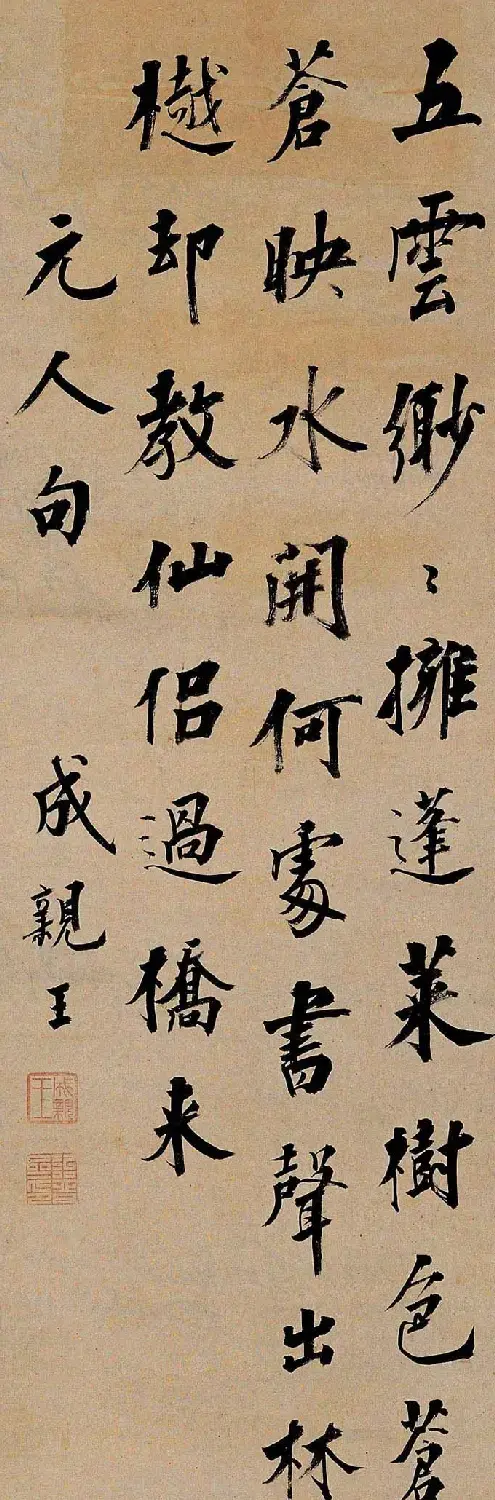 五雲緲〻擁蓬萊樹色蒼
蒼映水開何處書聲出林
樾却教仙侶過橋来
元人句
成親王
成親王